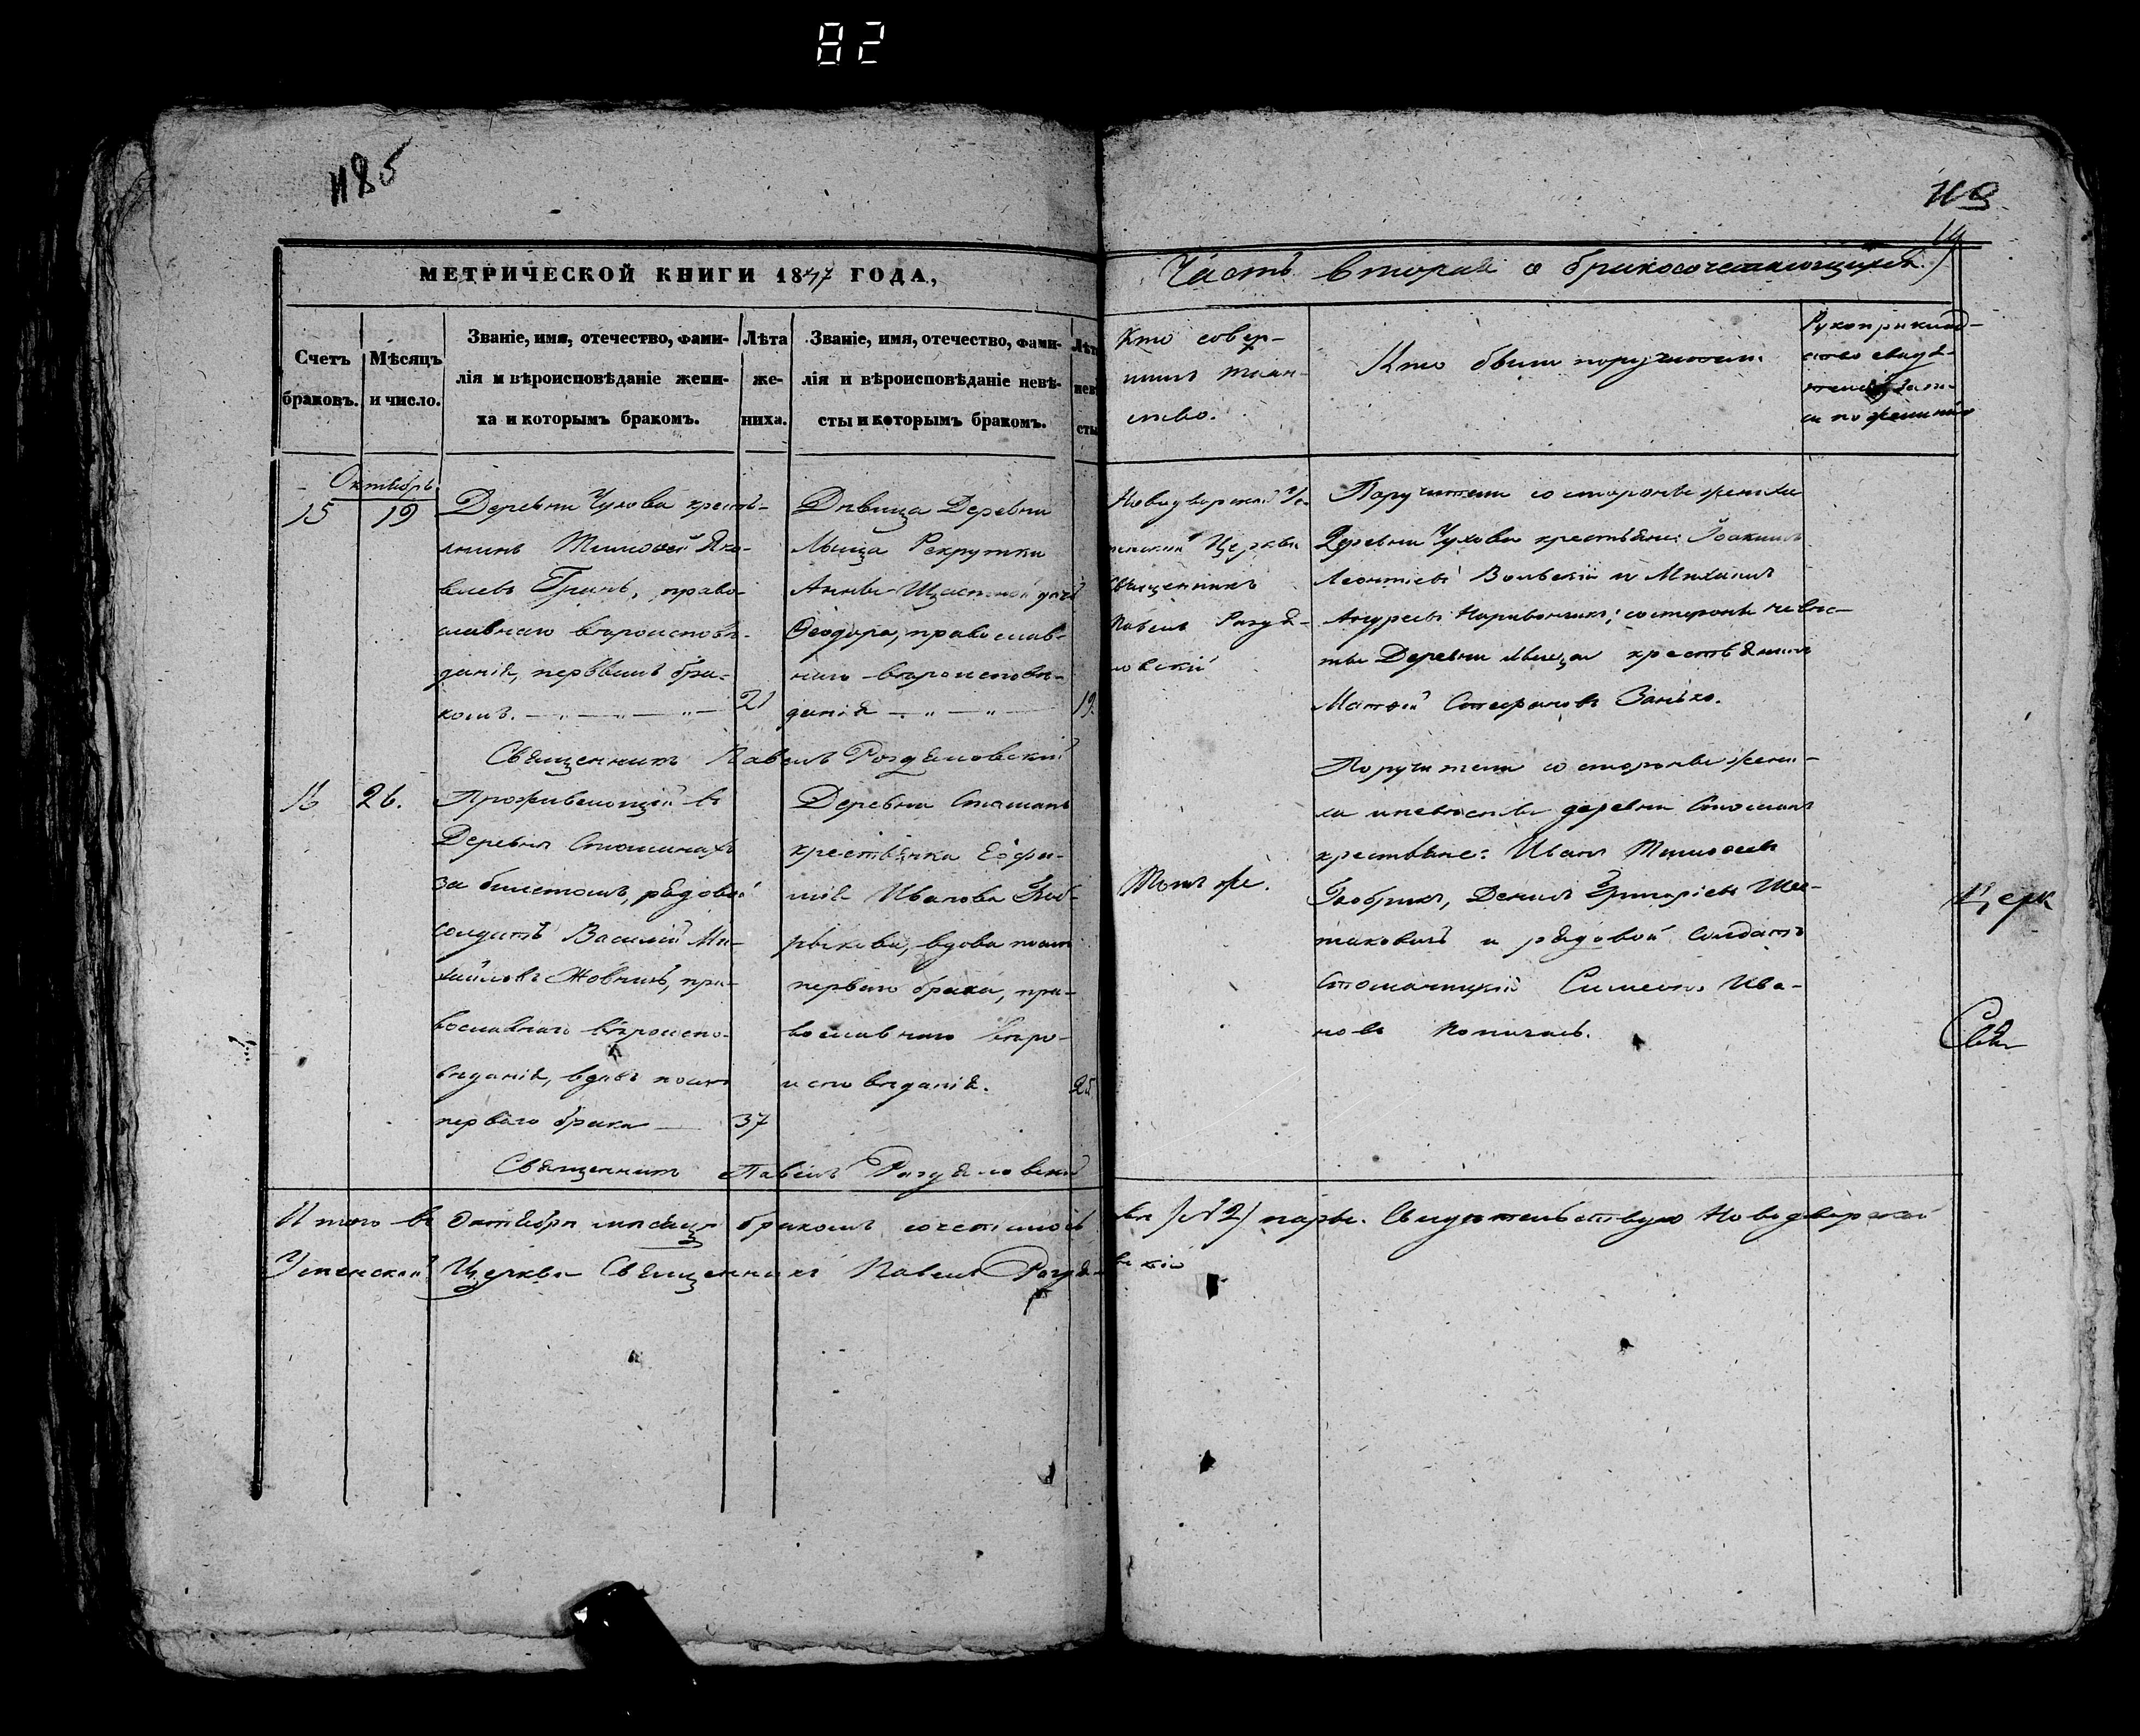 82
1185
119
14
МЕТРИЧЕСКОЙ КНИГИ 1847 ГОДА,
Часть вторая о бракосочетающихся
Счетъ
браковъ.
Мѣсяцъ
и число.
Званіе, имя, отечество, фами-
лія и вѣроисповѣданіе жени-
ха и которымъ бракомъ.
Лѣта
же-
ниха.
Званіе, имя, отечество, фами-
лія и вѣроисповѣданіе невѣ-
сты и которымъ бракомъ.
Лѣт
нев
сты
Кто совер-
шилъ таин-
ство.
Кто были поручители.
Рукоприклад-
ство свидѣ-
Октябрь
15
19
Деревни Чухова кресть-
янинъ Тимофей Яко-
влевъ Гринь, право-
славнаго вѣроисповѣ-
данія, первымъ бра-
комъ.
21
Дѣвица Деревни
Мыща Рекрутки
Анны дочь
Ѳеодора, православ-
наго вѣроисповѣ-
данія
19.
Священникъ Павелъ Роздяловскій
Новодворской Ус-
пенской Церкви
Священникъ
Павелъ Роздя-
ловскій
Поручители со стороны жениха
Деревни Чухова крестьяне: Іоакимъ
Леонтіевъ Вольскій и Михаилъ
Андреевъ со стороны невѣс-
ты Деревни Мыща крестьянинъ
Матѳей Стефановъ Занько.
16
26.
Проживающій въ
Деревнѣ Стошанахъ
за билетомъ, рядовой
солдатъ Василій Ми-
хайловъ Жовникъ, пра-
вославнаго вѣроиспо-
вѣданія, вдовъ послѣ
перваго брака
37
Деревни Стошанъ
крестьянка Евфи-
мія Иванова
вдова послѣ
перваго брака, пра-
вославнаго вѣро-
исповѣданія.
25
Священникъ Павелъ Роздяловскій
Тотъ же.
Поручители со стороны жени-
ха и невѣсты деревни Стошанъ
крестьяне: Иванъ Тимоѳеевъ
Бобрикъ, Демьянъ Григоріевъ Шес-
таковичъ и рядовой солдатъ
Симеонъ Ива-
новъ
Церк
Свя
Итого въ Октябрѣ мѣсяцѣ бракомъ сочеталось двѣ /№ 2/ пары. Свидѣтельствую Новодворской
Успенской Церкви Священникъ Павелъ Роздяловскій